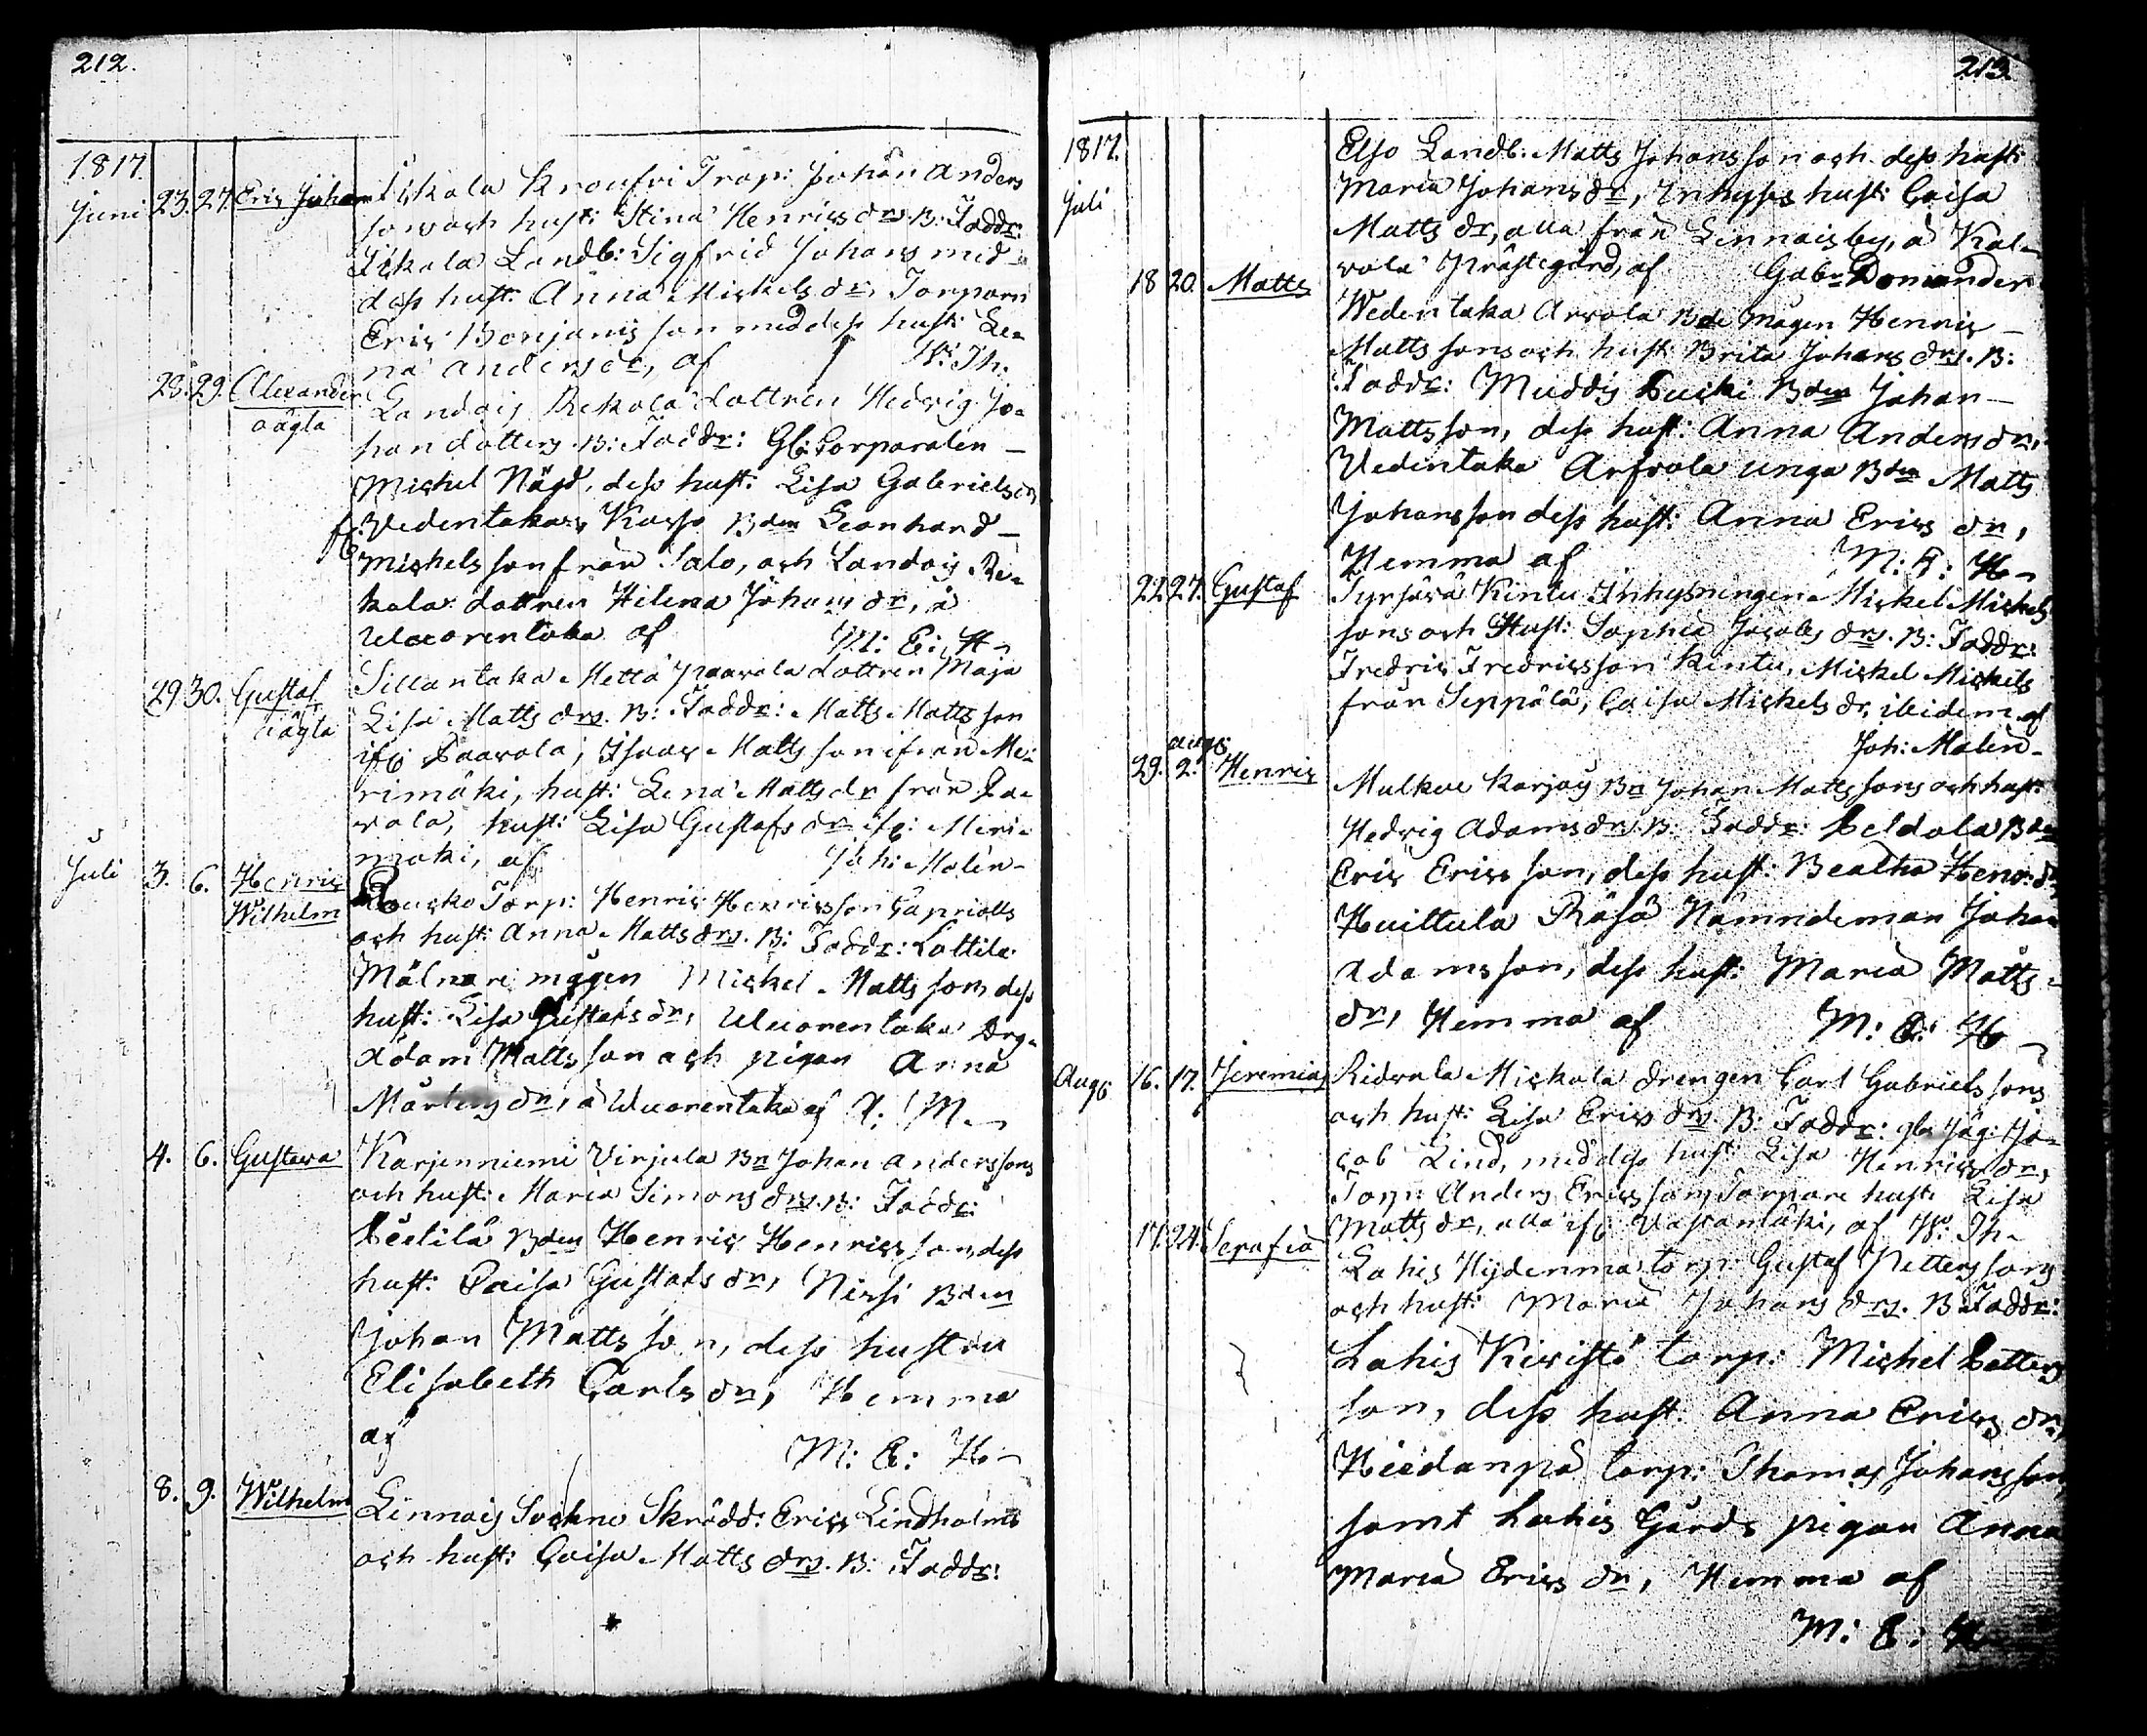 212.
1817.
Juni 23. 27. Eric Johan Sikala Kronfri Trop: Johan Anders
sons och hust: Stina Henricsdrs. B: Faddr:
Sikala Landb: Sigfrid Johans med
dess hust: Anna Mickels dr, Torparn
Eric Benjamis son med dess hust: Le-
na anders dr, af W: Th.
28. 29. Alexander Landois Rekola dottren Hedvig Jo-
oägta han dotters. B: Faddr: Gl: Corporalen
Michel Nöjd, dess hust: Lisa Gabriels dr,
Vedentakas Bden Leonhard
Michels son från Salo, och Landois Re-
kola dottren Helena Johans dr, à
Wuorentaka af M: E: H
29 30. Gustaf Sillantaka Mettä Paavola dottren Maja
oägta Lisa Matts drs. B: Faddr: Matts Matts son
ifr: Paavola, Isaac Matts son ifrån Me-
rimäki, hust: Lena Matts dr från Pa-
vola, hust: Lisa Gustafs dr ifr: Meri-
mäki, af Joh: Malèn
Juli 3. 6. Henric Torp: Henric Henricsson
Wilhelm och hust: Anna Matts drs. B: Faddr: Lottila
Mölnare mågen Mickel Matts son, dess
hust: Lisa Gustafs dr, Wuorentaka Drg.
Adam Matts son och pigan Anna
Mårtens dr, à Wuorentaka af A: M.
4. 6. Gustava Karjenniemi Virjula Bn Johan Anderssons
och hust: Maria Simons drs. B: Faddr:
Bden Henric Henrics son, dess
hust: Caisa Gustafs dr, Bden
Johan Matts son, dess hustru
Elisabeth Carls dr, Hemma
af
M: E: H
8. 9. Wilhelm Linnais Sockne Skrädd: Eric Lindholms
och hust: Caisa Matts drs. B: Faddr:
213.
1817.
Juli
Elso Landb: Matts Johans son och dess hust:
Maria Johans dr, Inhyses hust: Caisa
Matts dr, alla från Linnais by, à Kal-
vola Prästegård, af Gabr Domander
18 20. Matts Wedentaka Arvola Bde mågen Henric
Matts sons och hust: Brita Johans drs. B:
Faddr: Muddis Bden Johan
Matts son, dess hust: Anna Anders dr,
Vedentaka Arfvola unga Bden Matts
Johans son dess hust: Anna Erics dr,
Hemma af M: E: H
22 27. Gustaf Kintu Inhysningen Mickel Mickels
sons och Hust: Sophia Jacobs drs. B: Faddr:
Fredric Fredricsson Kintu, Mickel Mickels
från Seppälä, Caisa Mickels dr, ibidem. af
Joh: Malèn
Aug:
29. 2. Henric Bn Johan Matts sons och hust:
Hedvig Adams drs. B: Faddr: Bde
Eric Erics son, dess hust: Beatha Henr: dr
Huittula Nämndeman Johan
Adams son, dess hust: Maria Matts-
dr, Hemma af M: E: H
Aug: 16. 17. Jeremias Ridvala Mickola drengen Carl Gabriels sons
och hust: Lisa Erics drs. B: Faddr: gla Jäg: Ja-
cob Lind, med dess hust: Lisa Henrics dr,
Torp: Anders Erics son, Torpare hust: Lisa
Matts dr, alla ifr: af W: Th
17. 24. Serafia Lahis Hijdenmaa torp: Gustaf Petters sons
och hust: Maria Johans drs. B: Faddr:
Lahis Kivistö torp: Michel Petters
son, dess hust: Anna Erics dr,
Hiidanpä torp: Thomas Johans son,
samt Lahis Gårds pigan Anna
Maria Erics dr, Hemma af
M: E: H